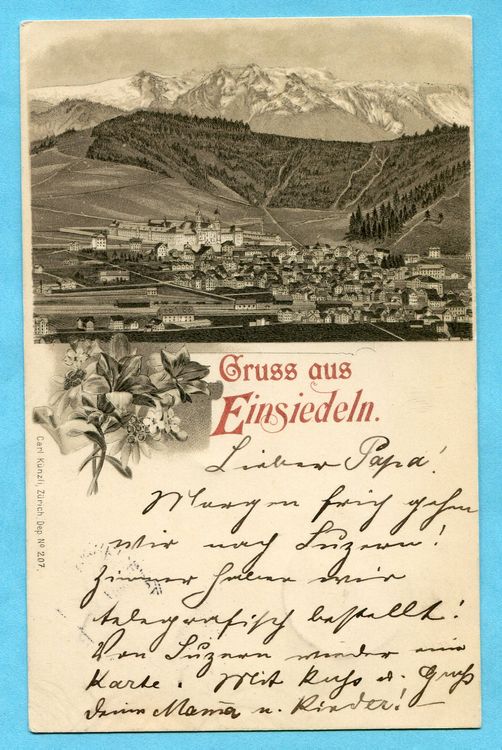 Gruss aus
Einsiedeln.
Carl Künzli, Zürich, Dep. No 207.
Lieber Papa!
Morgen früh gehen
wir nach Luzern!
Zimmer haben wir
telegrafisch bestellt!
Von Luzern wieder eine
Karte. Mit Kuss u. Gruss
deine Mama u. Kinder!